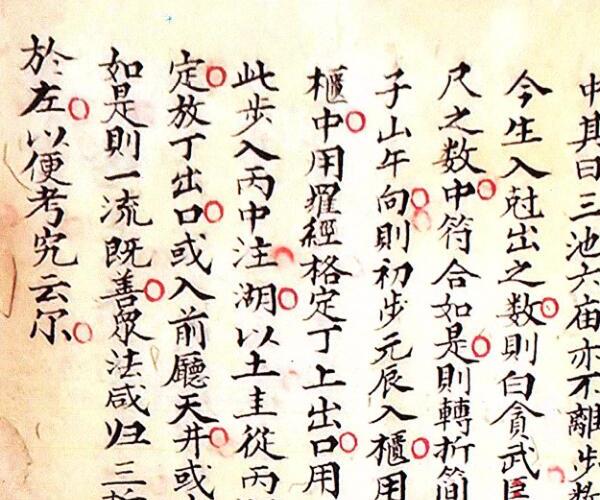 中其曰三池六庙亦不離步数
今生入尅出之数則白貪武
尺之数中符合如是則轉折简
子山午向則初步元辰入櫃用
櫃中用羅經格定丁上出口用
此步入丙中注湖以土主從丙
定放丁出口或入前廳天井或
如是則一流既善眾法咸归三
於左以便考究云尔